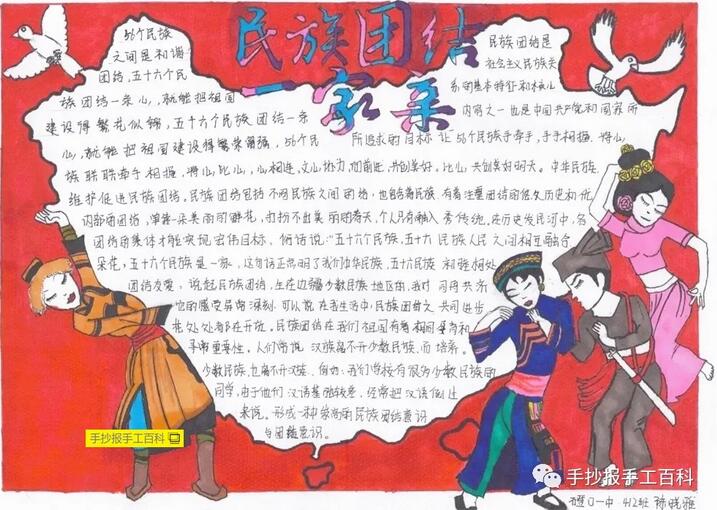 民族团结
一家亲
56个民族
之间是和谐
团结,五十六个民
族团结一条心,就能把祖国
建设得繁花似锦,五十六个民族团结一条
心,就能把祖国建设得繁荣富强,56个民
族联联牵手相握,将心比心,心相连,
维护促进民族团结,民族团结包括不同民族之间团结,也包含着民族
内部的团结,单单一朵美丽的鲜花,打扮不出美丽的春天,个人只有融入
团结的集体才能实现宏伟目标。俗话说:“五十六个民族,五十六
朵花,五十六个民族是一家,这句话正说明了我们中华民族,五六民族
团结友爱,说起民族团结,生在边疆少数民族地区的,我对
它的感受异常深刻,可以说在我生活中,民族团结之
花处处都在开放。民族团结在我们祖国有着
寻常重要性。人们常说汉族离不开少数民族,而
少数民族也离不开汉族。例如:我们学校有很多少数民族的
同学,由于他们汉语基础较差,经常把汉语
来说。形成一种崇高的民族团结意识
与团结意识。
民族团结是
社会主义民族关
系的基本特征和核心
内容之一也是中国共产党和国家所
所追求的目标让56个民族手牵手,手手相握,将心
比心共创美好明天。中华民族
有着注重团结的悠久历史和优
秀传统。在历史发展长河中,各
民族人民之间相互融合
和谐相处
共同进步
手抄报手工百科
手抄报手工百科
磴口一中 412班 陈晓雅